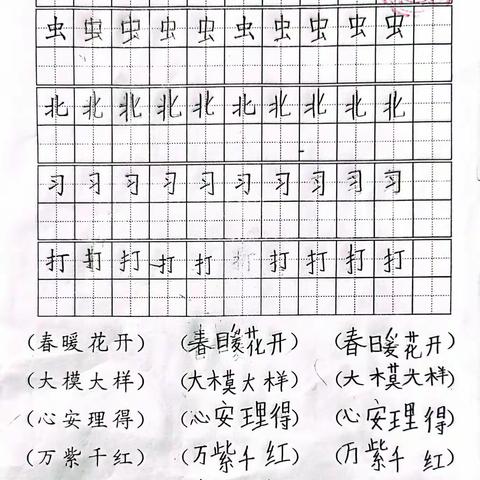 虫虫虫虫虫虫虫虫虫虫
北北北北北北北北北北
习习习习习习习习习习
打打打打打打打打打打
(春暖花开) (春暖花开) (春暖花开)
(大模大样) (大模大样) (大模大样)
(心安理得) (心安理得) (心安理得)
(万紫千红) (万紫千红) (万紫千红)